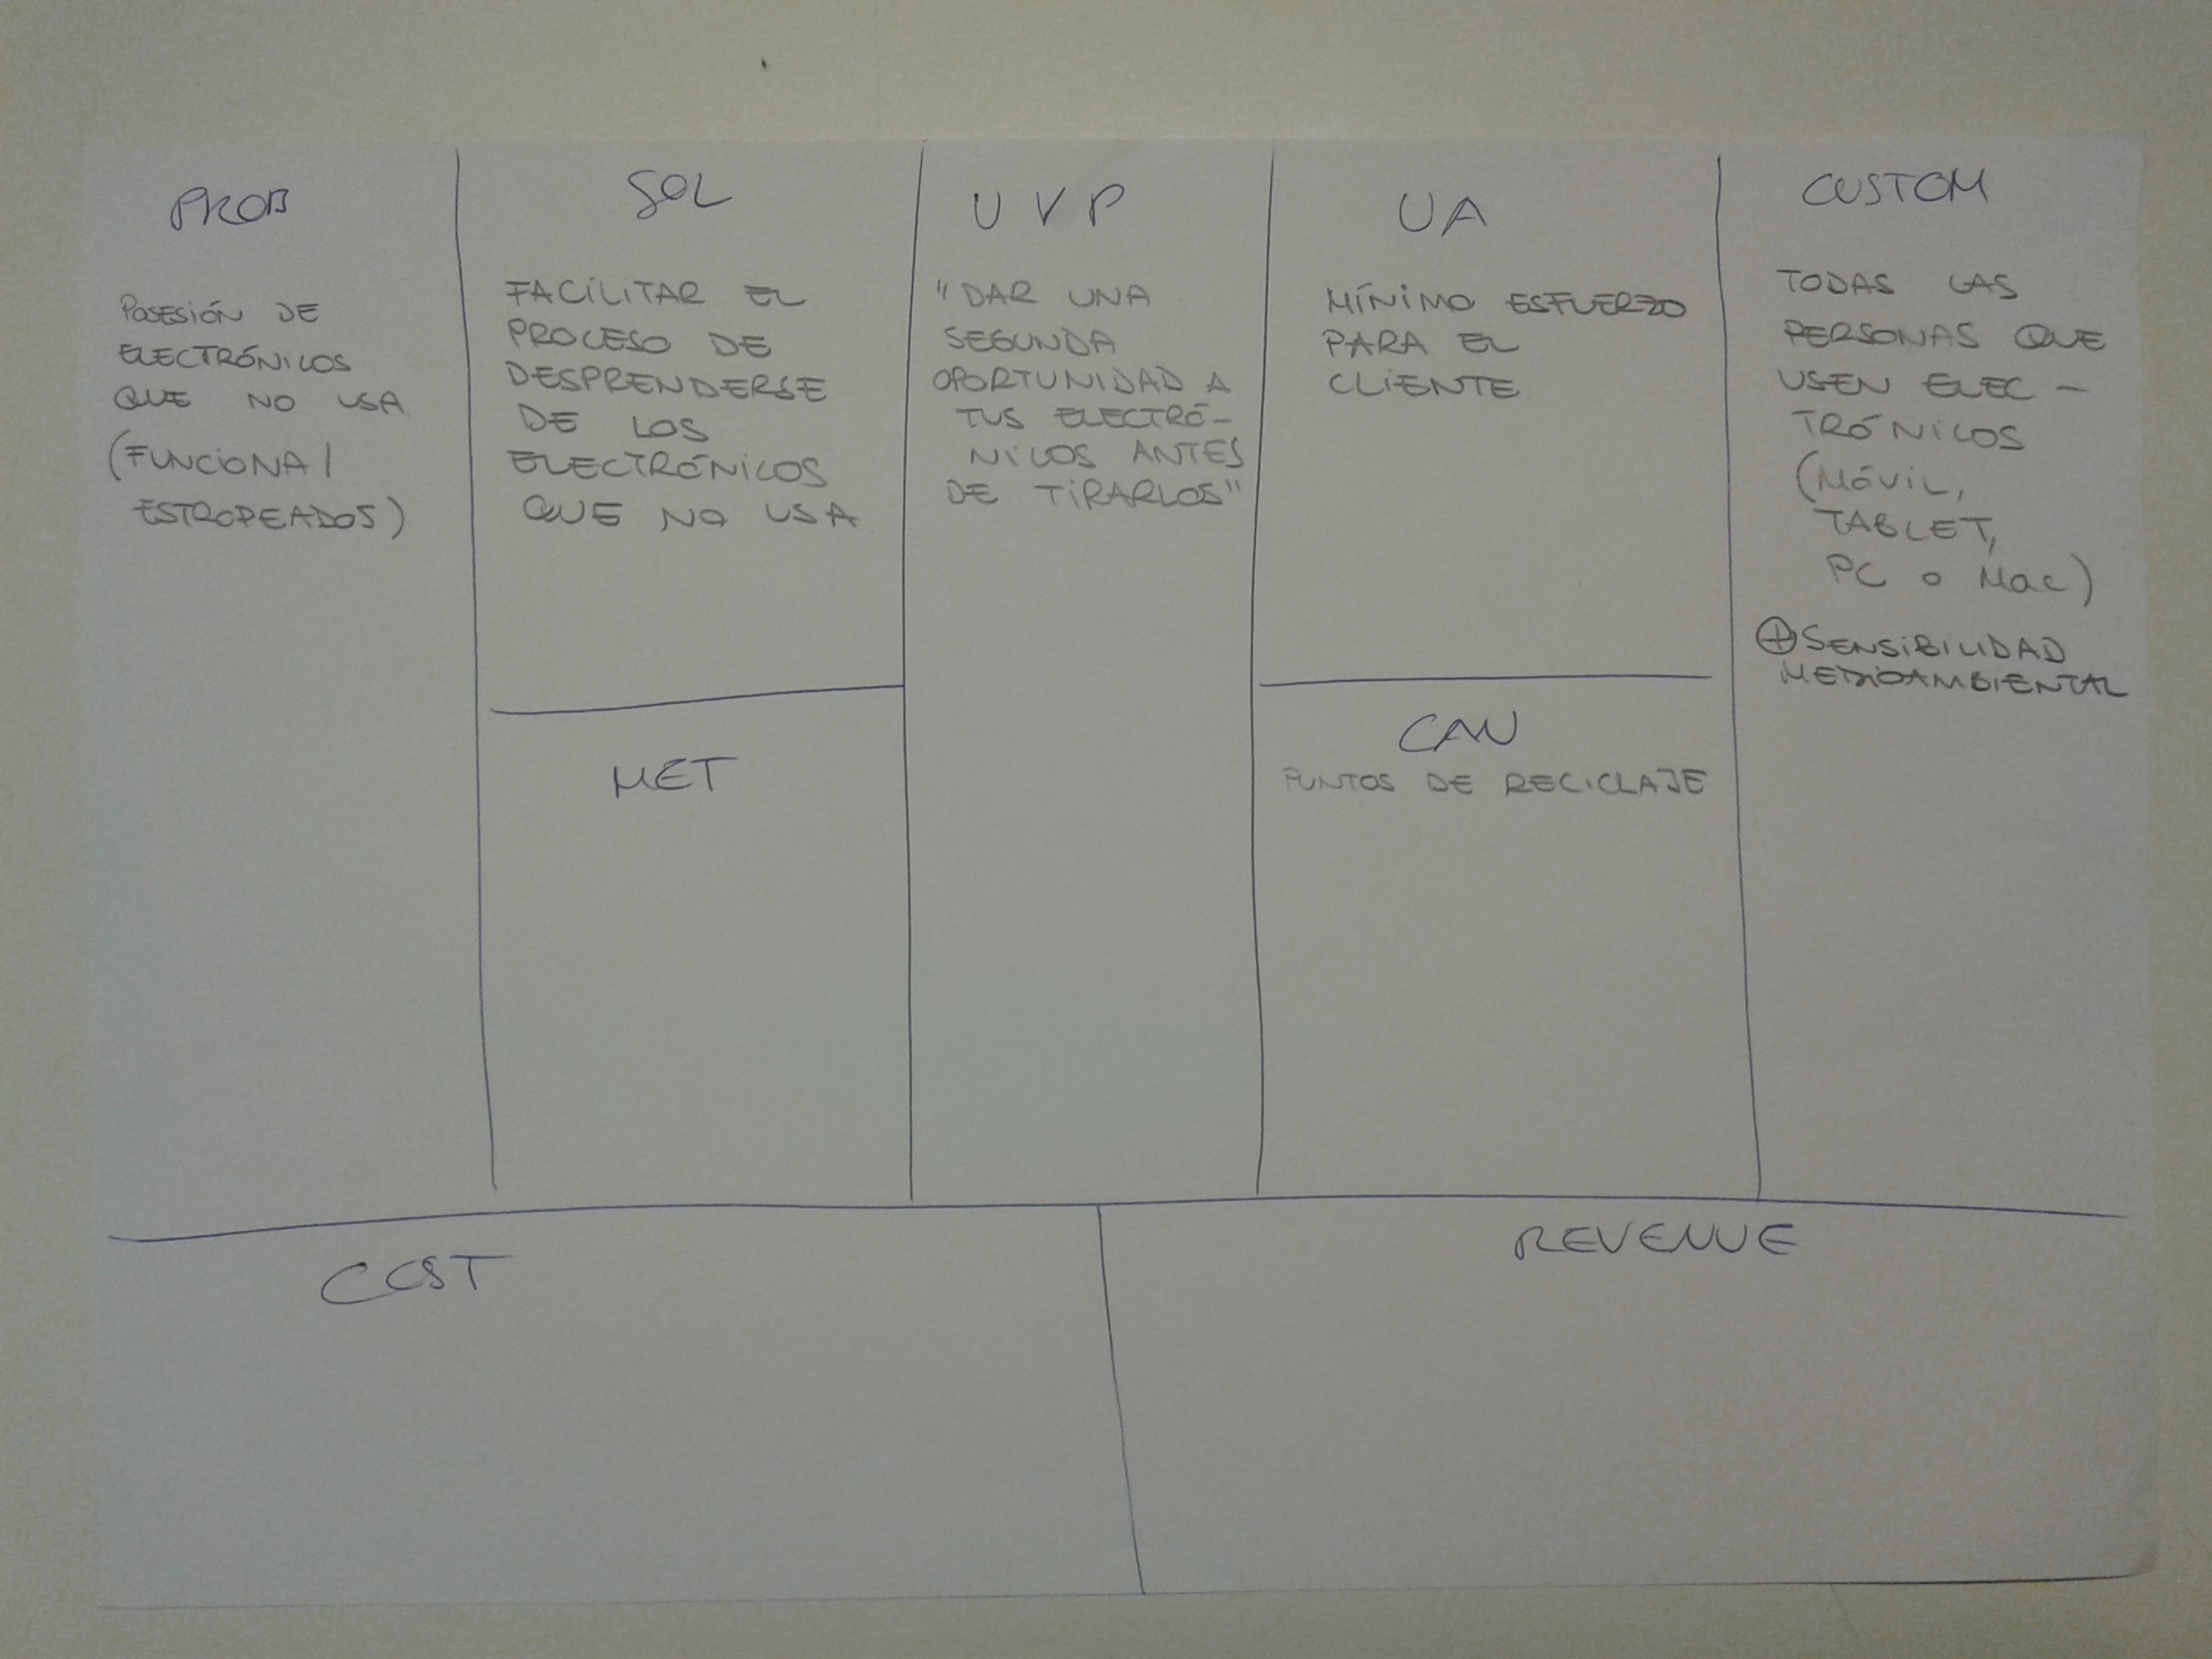 PROB
POSESIÓN DE
ELECTRÓNICOS
QUE NO USA
(FUNCIONA/
ESTROPEADOS)
SOL
FACILITAR EL
PROCESO DE
DESPRENDERSE
DE LOS
ELECTRÓNICOS
QUE NO USA
MET
UVP
"DAR UNA
SEGUNDA
OPORTUNIDAD A
TUS ELECTRÓ-
NICOS ANTES
DE TIRARLOS"
UA
MÍNIMO ESFUERZO
PARA EL
CLIENTE
CAN
PUNTOS DE RECICLAJE
CUSTOM
TODAS LAS
PERSONAS QUE
USEN ELEC-
TRÓNICOS
(MÓVIL,
TABLET,
PC o Mac)
⊕ SENSIBILIDAD
MEDIOAMBIENTAL
COST
REVENUE